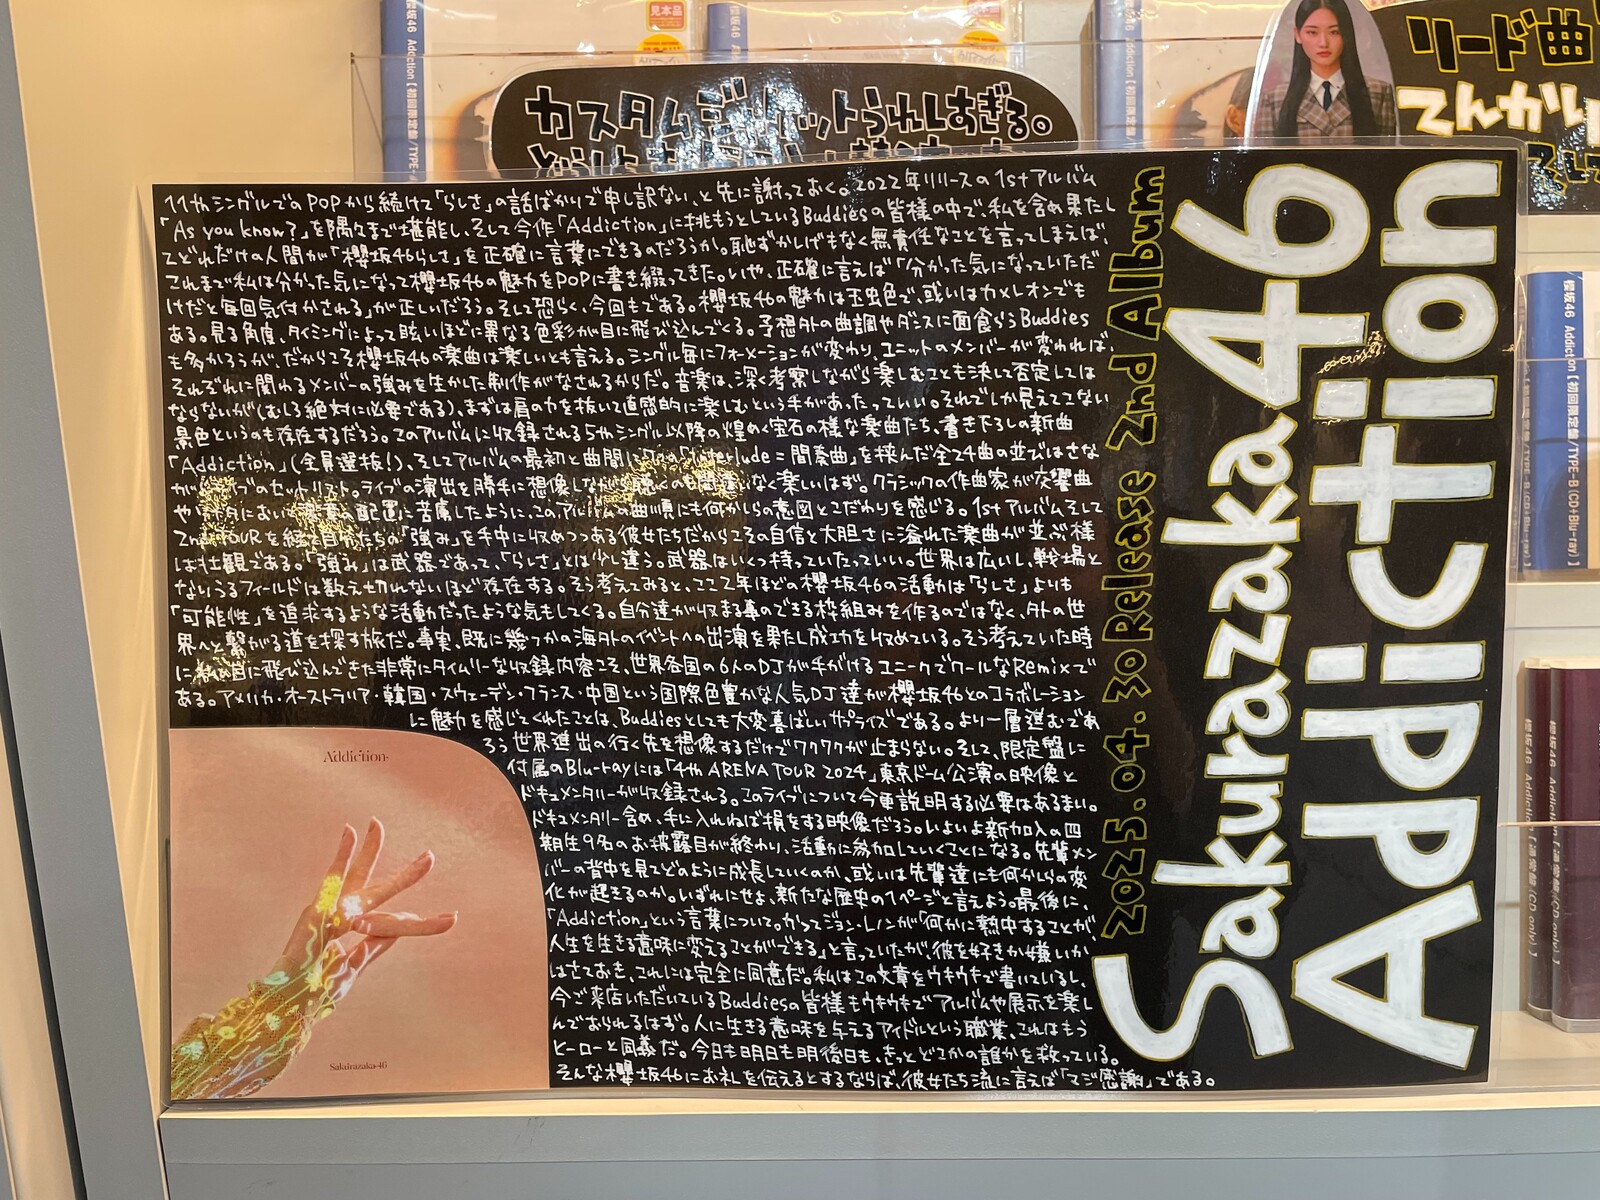 櫻坂46 Addiction【初回限定盤/TYPE-
見本品
カスタムジャケットうれしすぎる。
リード曲
てんかい
11thシングルでのPOPから続けて「らしさ」の話ばかりで申し訳ない、と先に謝っておく。2022年リリースの1stアルバム
「As you know?」を隅々まで堪能し、そして今作「Addiction」に挑もうとしているBuddiesの皆様の中で、私を含め果たし
てどれだけの人間が「櫻坂46らしさ」を正確に言葉にできるのだろうか。恥ずかしげもなく無責任なことを言ってしまえば、
これまで私は分かった気になって櫻坂46の魅力をPOPに書き綴ってきた。いや、正確に言えば「分かった気になっていただ
けだと毎回気付かされる」が正しいだろう。そして恐らく、今回もである。櫻坂46の魅力は玉虫色で、或いはカメレオンでも
ある。見る角度、タイミングによって眩いほどに異なる色彩が目に飛び込んでくる。予想外の曲調やダンスに面食らうBuddies
も多かろうが、だからこそ櫻坂46の楽曲は楽しいとも言える。シングル毎にフォーメーションが変わり、ユニットのメンバーが変われば、
それぞれに関わるメンバーの強みを生かした制作がなされるからだ。音楽は、深く考察しながら楽しむことも決して否定しては
ならないが(むしろ絶対に必要である)、まずは肩の力を抜いて直感的に楽しむという手があったっていい。それでしか見えてこない
景色というのも存在するだろう。このアルバムに収録される5thシングル以降の煌めく宝石の様な楽曲たち、書き下ろしの新曲
「Addiction」(全員選抜!)、そしてアルバムの最初と曲間に「Interlude=間奏曲」を挟んだ全24曲の並びはさな
がらライブのセットリスト。ライブの演出を勝手に想像しながら聴くのも間違いなく楽しいはず。クラシックの作曲家が交響曲
やソナタにおいて楽章の配置に苦慮したように、このアルバムの曲順にも何かしらの意図とこだわりを感じる。1stアルバムそして
2nd TOURを経て自分たちの「強み」を手中に収めつつある彼女たちだからこその自信と大胆さに溢れた楽曲が並ぶ様
は壮観である。「強み」は武器であって、「らしさ」とは少し違う。武器はいくつ持っていたっていい。世界は広いし、戦場と
なりうるフィールドは数え切れないほど存在する。そう考えてみると、ここ2年ほどの櫻坂46の活動は「らしさ」よりも
「可能性」を追求するような活動だったような気もしてくる。自分達が収まる事のできる枠組みを作るのではなく、外の世
界へと繋がる道を探す旅だ。事実、既に幾つかの海外のイベントへの出演を果たし成功を収めている。そう考えていた時
に私の目に飛び込んできた非常にタイムリーな収録内容こそ、世界各国の6人のDJが手がけるユニークでクールなRemixで
ある。アメリカ・オーストラリア・韓国・スウェーデン・フランス・中国という国際色豊かな人気DJ達が櫻坂46とのコラボレーション
に魅力を感じてくれたことは、Buddiesとしても大変喜ばしいサプライズである。より一層進むであ
ろう世界進出の行く先を想像するだけでワクワクが止まらない。そして、限定盤に
付属のBlu-rayには「4th ARENA TOUR 2024」東京ドーム公演の映像と
ドキュメンタリーが収録される。このライブについて今更説明する必要はあるまい。
ドキュメンタリー含め、手に入れねば損をする映像だろう。いよいよ新加入の四
期生9名のお披露目が終わり、活動に参加していくことになる。先輩メン
バーの背中を見てどのように成長していくのか、或いは先輩達にも何かしらの変
化が起きるのか。いずれにせよ、新たな歴史の1ページと言えよう。最後に、
「Addiction」という言葉について。かつてジョン・レノンが「何かに熱中することが、
人生を生きる意味に変えることができる」と言っていたが、彼を好きか嫌いか
はさておき、これには完全に同意だ。私はこの文章をウキウキで書いているし、
今ご来店いただいているBuddiesの皆様もウキウキでアルバムや展示を楽し
んでおられるはず。人に生きる意味を与えるアイドルという職業、これはもう
ヒーローと同義だ。今日も明日も明後日も、きっとどこかの誰かを救っている。
そんな櫻坂46にお礼を伝えるとするならば、彼女たち流に言えば「マジ感謝」である。
2025.04.30 Release 2nd Album
Sakurazaka46
Addiction
Addiction
Sakurazaka46
櫻坂46 Addiction【初回限定盤/TYPE-B(CD+Blu-ray)】
櫻坂46 Addiction【通常盤/CD only】